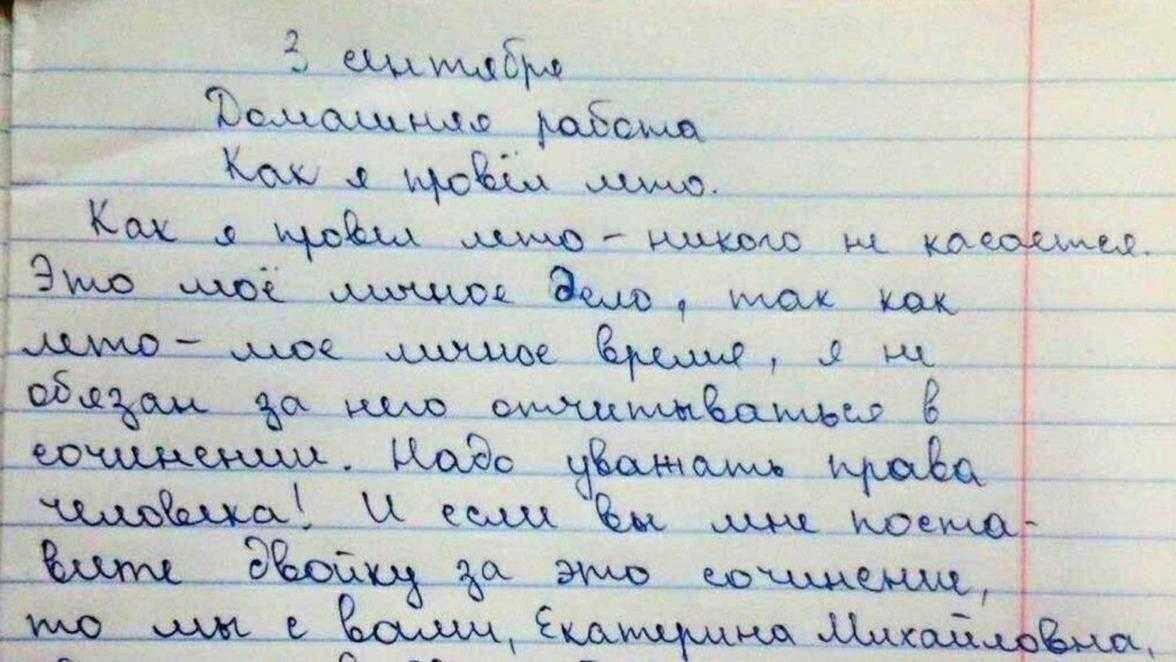 3 сентября
Домашняя работа
Как я провёл лето.
Как я провел лето – никого не касается.
Это моё личное дело, так как
лето – мое личное время, я не
обязан за него отчитываться в
сочинении. Надо уважать права
человека! И если вы мне поста-
вите двойку за это сочинение,
то мы с вами, Екатерина Михайловна,